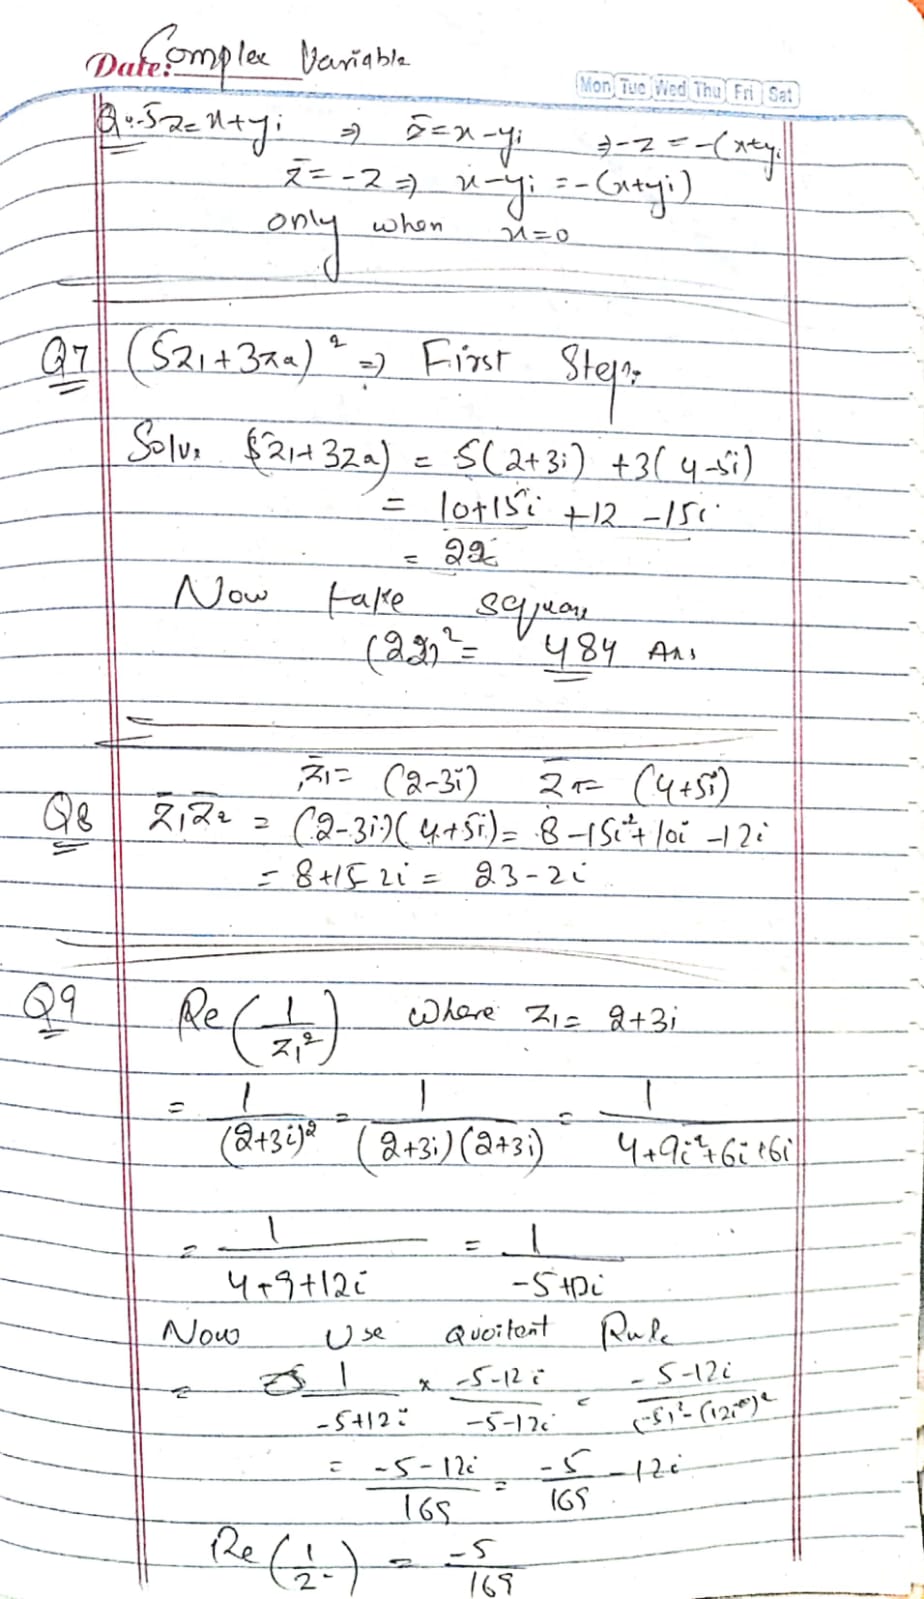 Complex Variable
Date:
Mon Tue Wed Thu Fri Sat
Q:-5 z=x+yi ⇒ z̄=x-yi ⇒ -z=-(x+yi
z̄=-z ⇒ x-yi=-(x+yi)
only when x=0
Q7 (5z₁+3z₂)² ⇒ First Step:
Solve (5z₁+3z₂) = 5(2+3i) +3(4-5i)
= 10+15i +12 -15i
= 22
Now take square
(22)² = 484 Ans
z̄₁= (2-3i) z̄₂= (4+5i)
Q8 z̄₁z̄₂ = (2-3i)(4+5i)= 8-15i²+10i -12i
= 8+15 2i = 23-2i
Q9 Re(1/z₁²) where z₁= 2+3i
= 1/(2+3i)² = 1/(2+3i)(2+3i) = 1/4+9i²+6i+6i
= 1/4+9+12i = 1/-5+12i
Now Use Quoitent Rule
= 1/-5+12i × -5-12i/-5-12i = -5-12i/(-5)²-(12i)²
= -5-12i/169 = -5/169 -12i
Re(1/z-) = -5/169